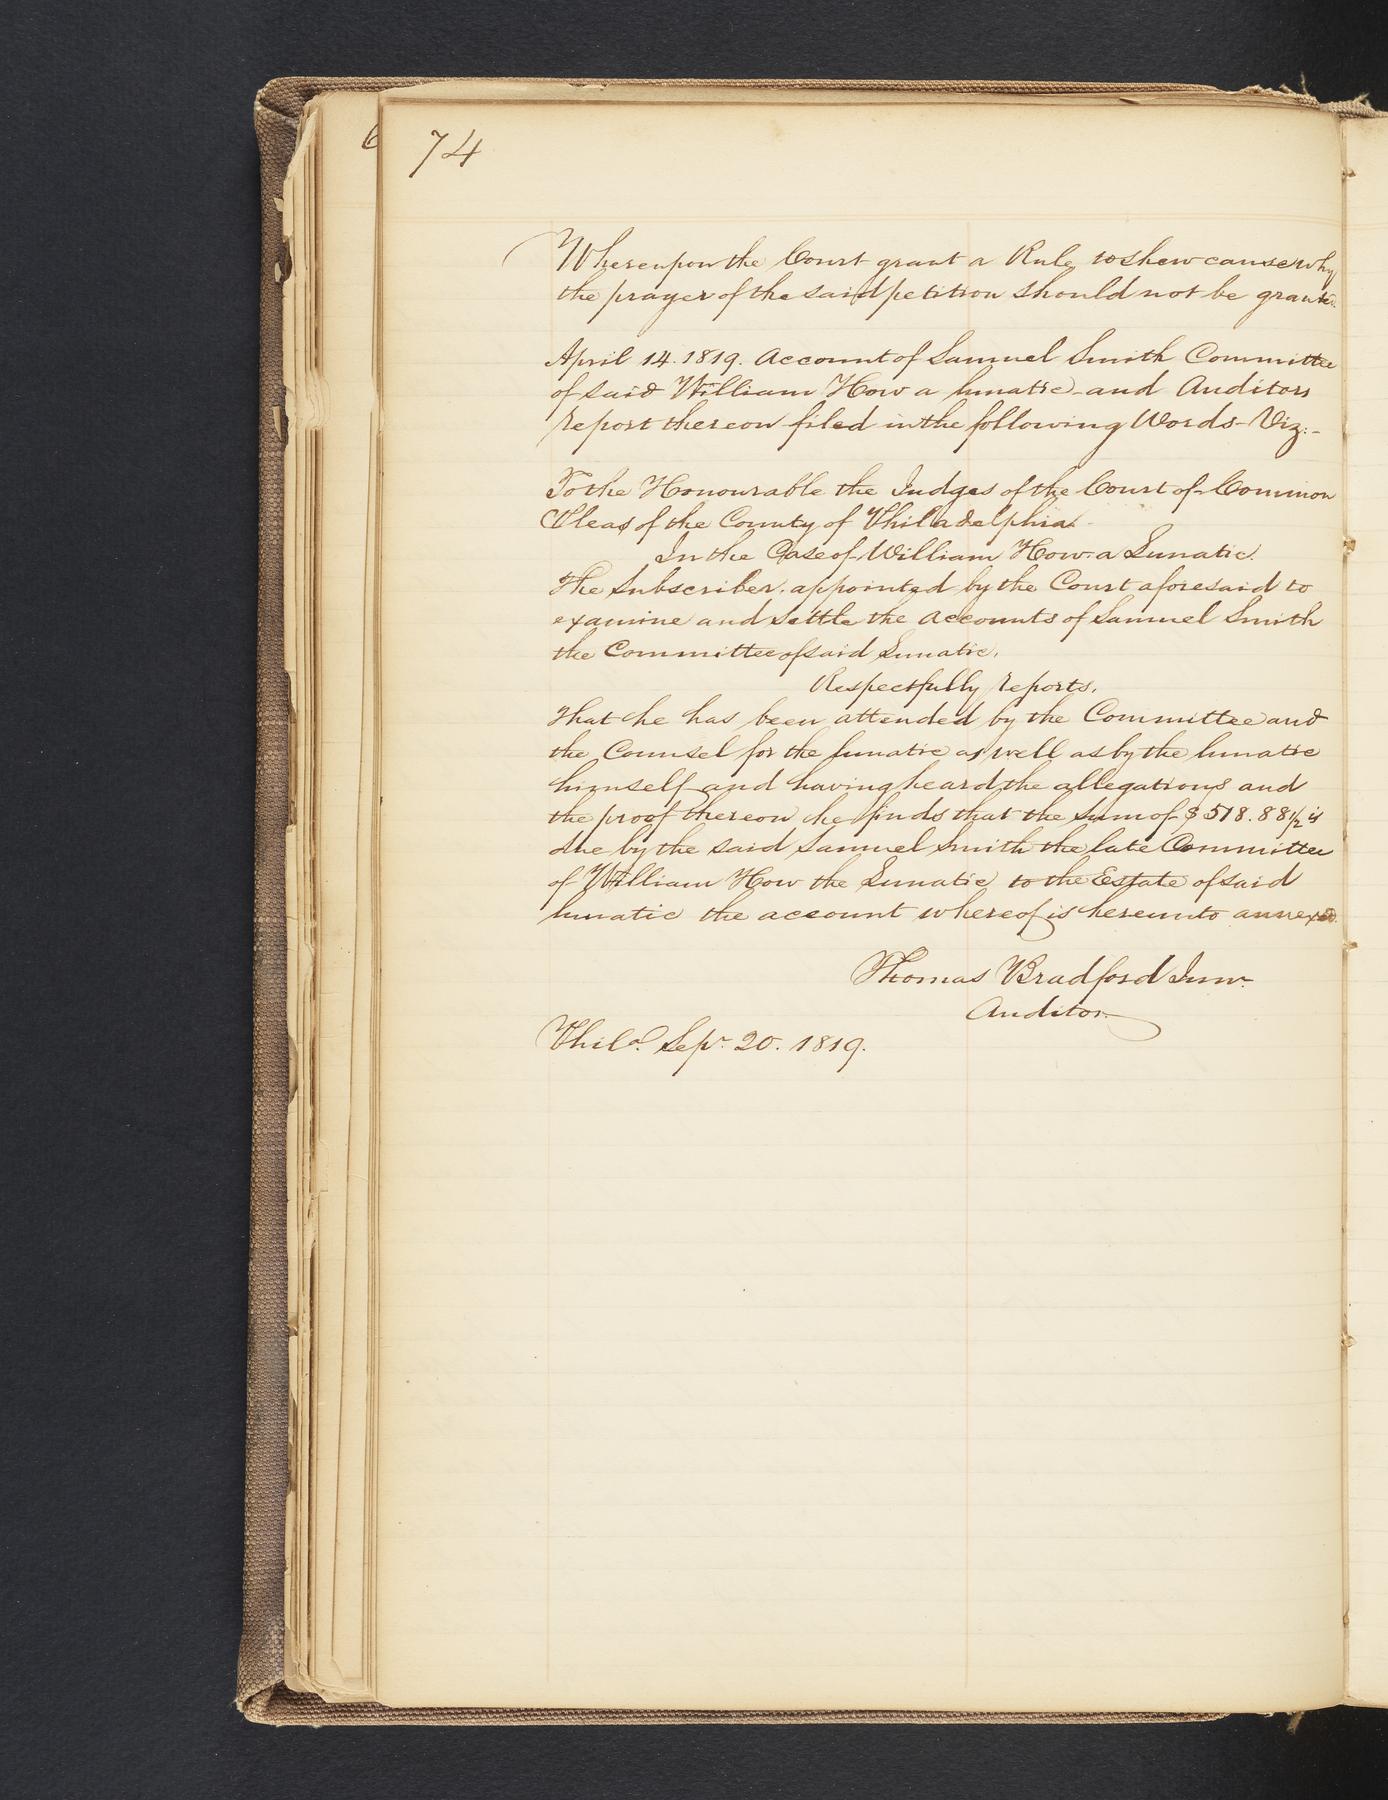 74
Whereupon the Court grant a Rule to shew cause why
the prayer of the said petition should not be granted.
April 14. 1819. Account of Samuel Smith Committee
of said William How a lunatic and Auditors
report thereon filed in the following Words - Viz:-
To the Honourable the Judges of the Court of Common
Pleas of the County of Philadelphia.
In the Case of William How a Lunatic.
The Subscriber, appointed by the Court aforesaid to
examine and settle the accounts of Samuel Smith
the Committee of said Lunatic.
Respectfully reports.
That he has been attended by the Committee and
the Counsel for the lunatic as well as by the lunatic
himself and having heard the allegations and
the proof thereon he finds that the Sum of $518.88½ is
due by the said Samuel Smith the late Committee
of William How the Lunatic to the Estate of said
lunatic the account whereof is hereunto annexed.
Thomas Bradford Junr
Auditor
Phila. Sepr 20. 1819.